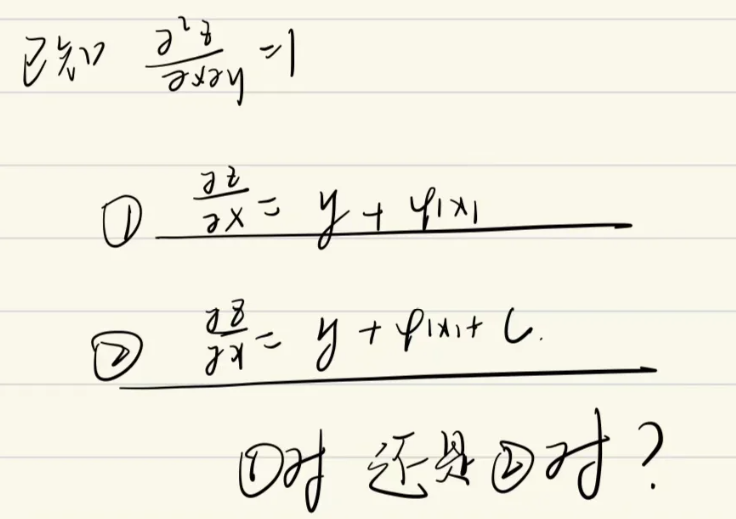 已知 ∂²z/∂x∂y = 1
① ∂z/∂x = y + φ(x)
② ∂z/∂x = y + φ(x) + C.
①对 还是 ②对？